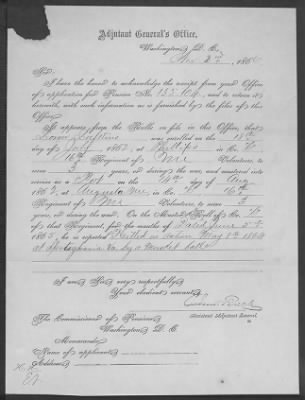 Adjutant General's Office,
Washington, D. C.
186
Sir:
I have the honor to acknowledge the receipt from your Office
of application for Pension No. and to return it
herewith, with such information as is furnished by the files of this
Office.
It appears from the Rolls on file in this Office, that
was enrolled on the
day of July, 1862, at Phillips in Co.
16th Regiment of Me Volunteers, to
serve 3 years, or during the war, and mustered into
service as a on the 14th day of Aug
1862, at Augusta Me in Co. 16th
Regiment of Me Volunteers, to serve 3
years, or during the war. On the Muster Roll of Co.
of that Regiment, for the months of Dated June 5th
1865, he is reported Killed in action May 8th 1864
at Spottsylvania Va by a musket ball
I am, Sir, very respectfully,
Your obedient servant,
Assistant Adjutant General.
The Commissioner of Pensions,
Washington, D. C.
Memoranda:
Name of applicant,
Address,